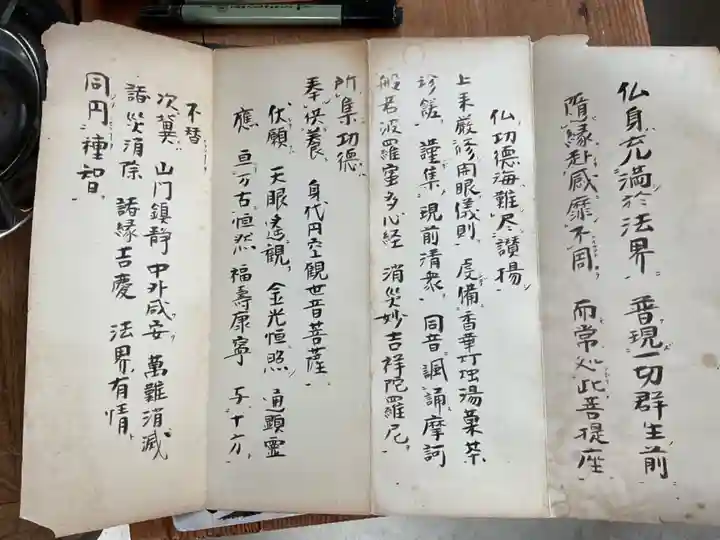 仏身充満於法界 普現一切群生前
随縁赴感靡不周 而常処此菩提座
仏功徳海難尽讃揚
上来厳修開眼儀則 虔備香華灯燭湯菓茶
珍饈 謹集現前清衆 同音諷誦摩訶
般若波羅蜜多心経 消災妙吉祥陀羅尼
所集功徳
奉供養 身代円空観世音菩薩
伏願 天眼遙観 金光恒照 通顕霊
應 亘万古恒然 福壽康寧 与十方
不替
次冀 山門鎮静 中外咸安 萬難消滅
諸災消除 諸縁吉慶 法界有情
同円種智